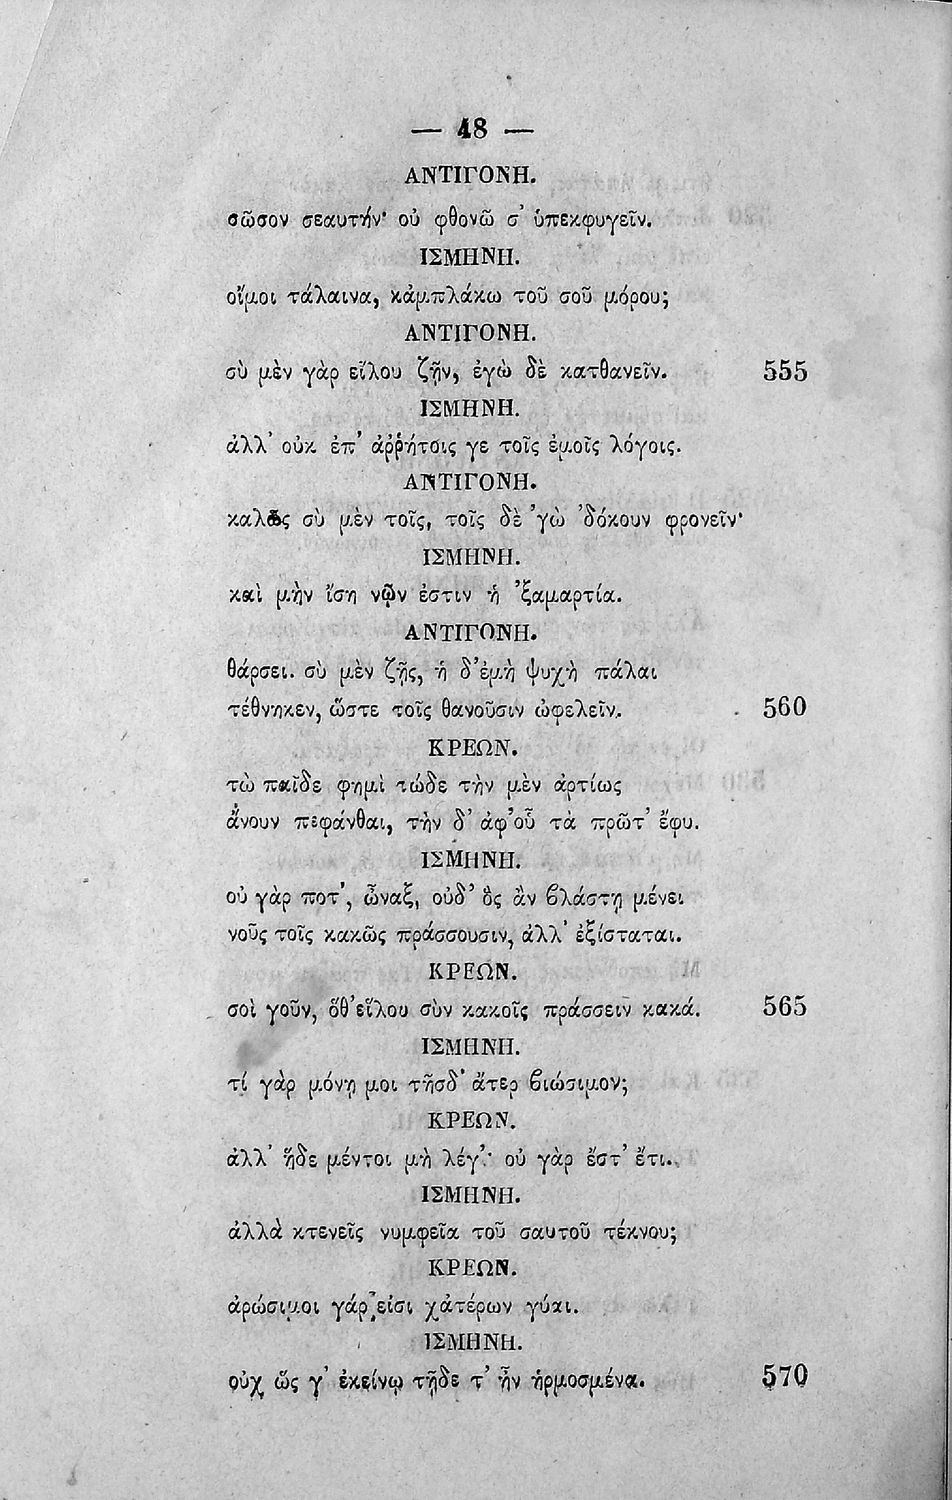 — 48 —
ΑΝΤΙΓΟΝΗ.
σῶσον σεαυτήν· οὐ φθονῶ σ’ ὑπεκφυγεῖν.
ΙΣΜΗΝΗ.
οἴμοι τάλαινα, κἀμπλάκω τοῦ σοῦ μόρου;
ΑΝΤΙΓΟΝΗ.
σὺ μὲν γὰρ εἵλου ζῆν, ἐγὼ δὲ κατθανεῖν. 555
ΙΣΜΗΝΗ.
ἀλλ’ οὐκ ἐπ’ ἀῤῥήτοις γε τοῖς ἐμοῖς λόγοις.
ΑΝΤΙΓΟΝΗ.
καλῶς σὺ μὲν τοῖς, τοῖς δὲ ’γὼ ’δόκουν φρονεῖν·
ΙΣΜΗΝΗ.
καὶ μὴν ἴση νῷν ἐστιν ἡ ’ξαμαρτία.
ΑΝΤΙΓΟΝΗ.
θάρσει. σὺ μὲν ζῇς, ἡ δ’ἐμὴ ψυχὴ πάλαι
τέθνηκεν, ὥστε τοῖς θανοῦσιν ὠφελεῖν. 560
ΚΡΕΩΝ.
τὼ παῖδε φημὶ τώδε τὴν μὲν ἀρτίως
ἄνουν πεφάνθαι, τὴν δ’ ἀφ’οὗ τὰ πρῶτ’ ἔφυ.
ΙΣΜΗΝΗ.
οὐ γὰρ ποτ’, ὦναξ, οὐδ’ ὃς ἂν βλάστῃ μένει
νοῦς τοῖς κακῶς πράσσουσιν, ἀλλ’ ἐξίσταται.
ΚΡΕΩΝ.
σοὶ γοῦν, ὅθ’εἵλου σὺν κακοῖς πράσσειν κακά. 565
ΙΣΜΗΝΗ.
τί γὰρ μόνῃ μοι τῆσδ’ ἄτερ βιώσιμον;
ΚΡΕΩΝ.
ἀλλ’ ἥδε μέντοι μὴ λέγ’· οὐ γὰρ ἔστ’ ἔτι.
ΙΣΜΗΝΗ.
ἀλλὰ κτενεῖς νυμφεῖα τοῦ σαυτοῦ τέκνου;
ΚΡΕΩΝ.
ἀρώσιμοι γάρ εἰσι χἀτέρων γύαι.
ΙΣΜΗΝΗ.
οὐχ ὥς γ’ ἐκείνῳ τῇδε τ’ ἦν ἡρμοσμένα. 570